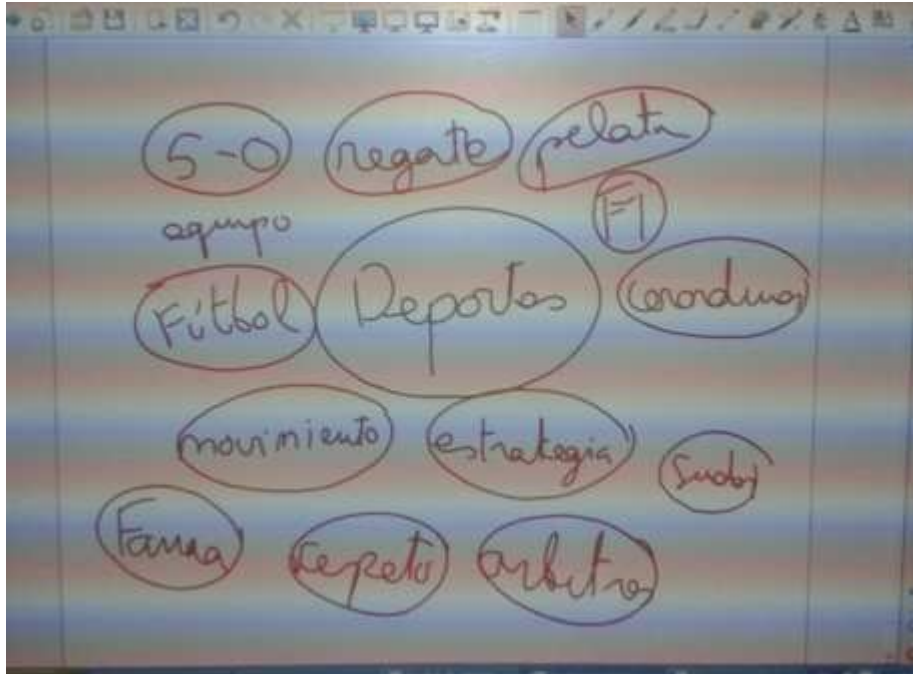 5-0 regate pelata
F1
equipo
Fútbol Deportes
movimiento estrategia
Sudor
Fama respeto arbitros